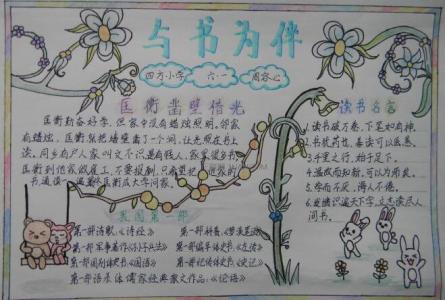 与书为伴
四方小学 六·一 周容心
匡衡凿壁借光
匡衡勤奋好学，但家中没有蜡烛照明。邻家
有蜡烛，匡衡就把墙壁凿了一个洞，让光照在书上
读。同乡有户人家叫文不识，是有钱人，家里很多书。
匡衡到他家做雇工，不要报酬，只希望把他家的
书通读一遍。匡衡成大学问家。
我国第一部
第一部诗歌《诗经》
第一部军事著作《孙子兵法》
第一部国别体史书《国语》
第一部语录体儒家经典散文作品：《论语》
第一部编年体史书《左传》
第一部纪传体史书《史记》
读书名言
1.读书破万卷，下笔如有神。
2.书犹药也，善读可以医愚。
3.千里之行，始于足下。
4.温故而知新，可以为师矣。
5.学而不厌，诲人不倦。
6.发愤识遍天下字，立志读尽人
间书。